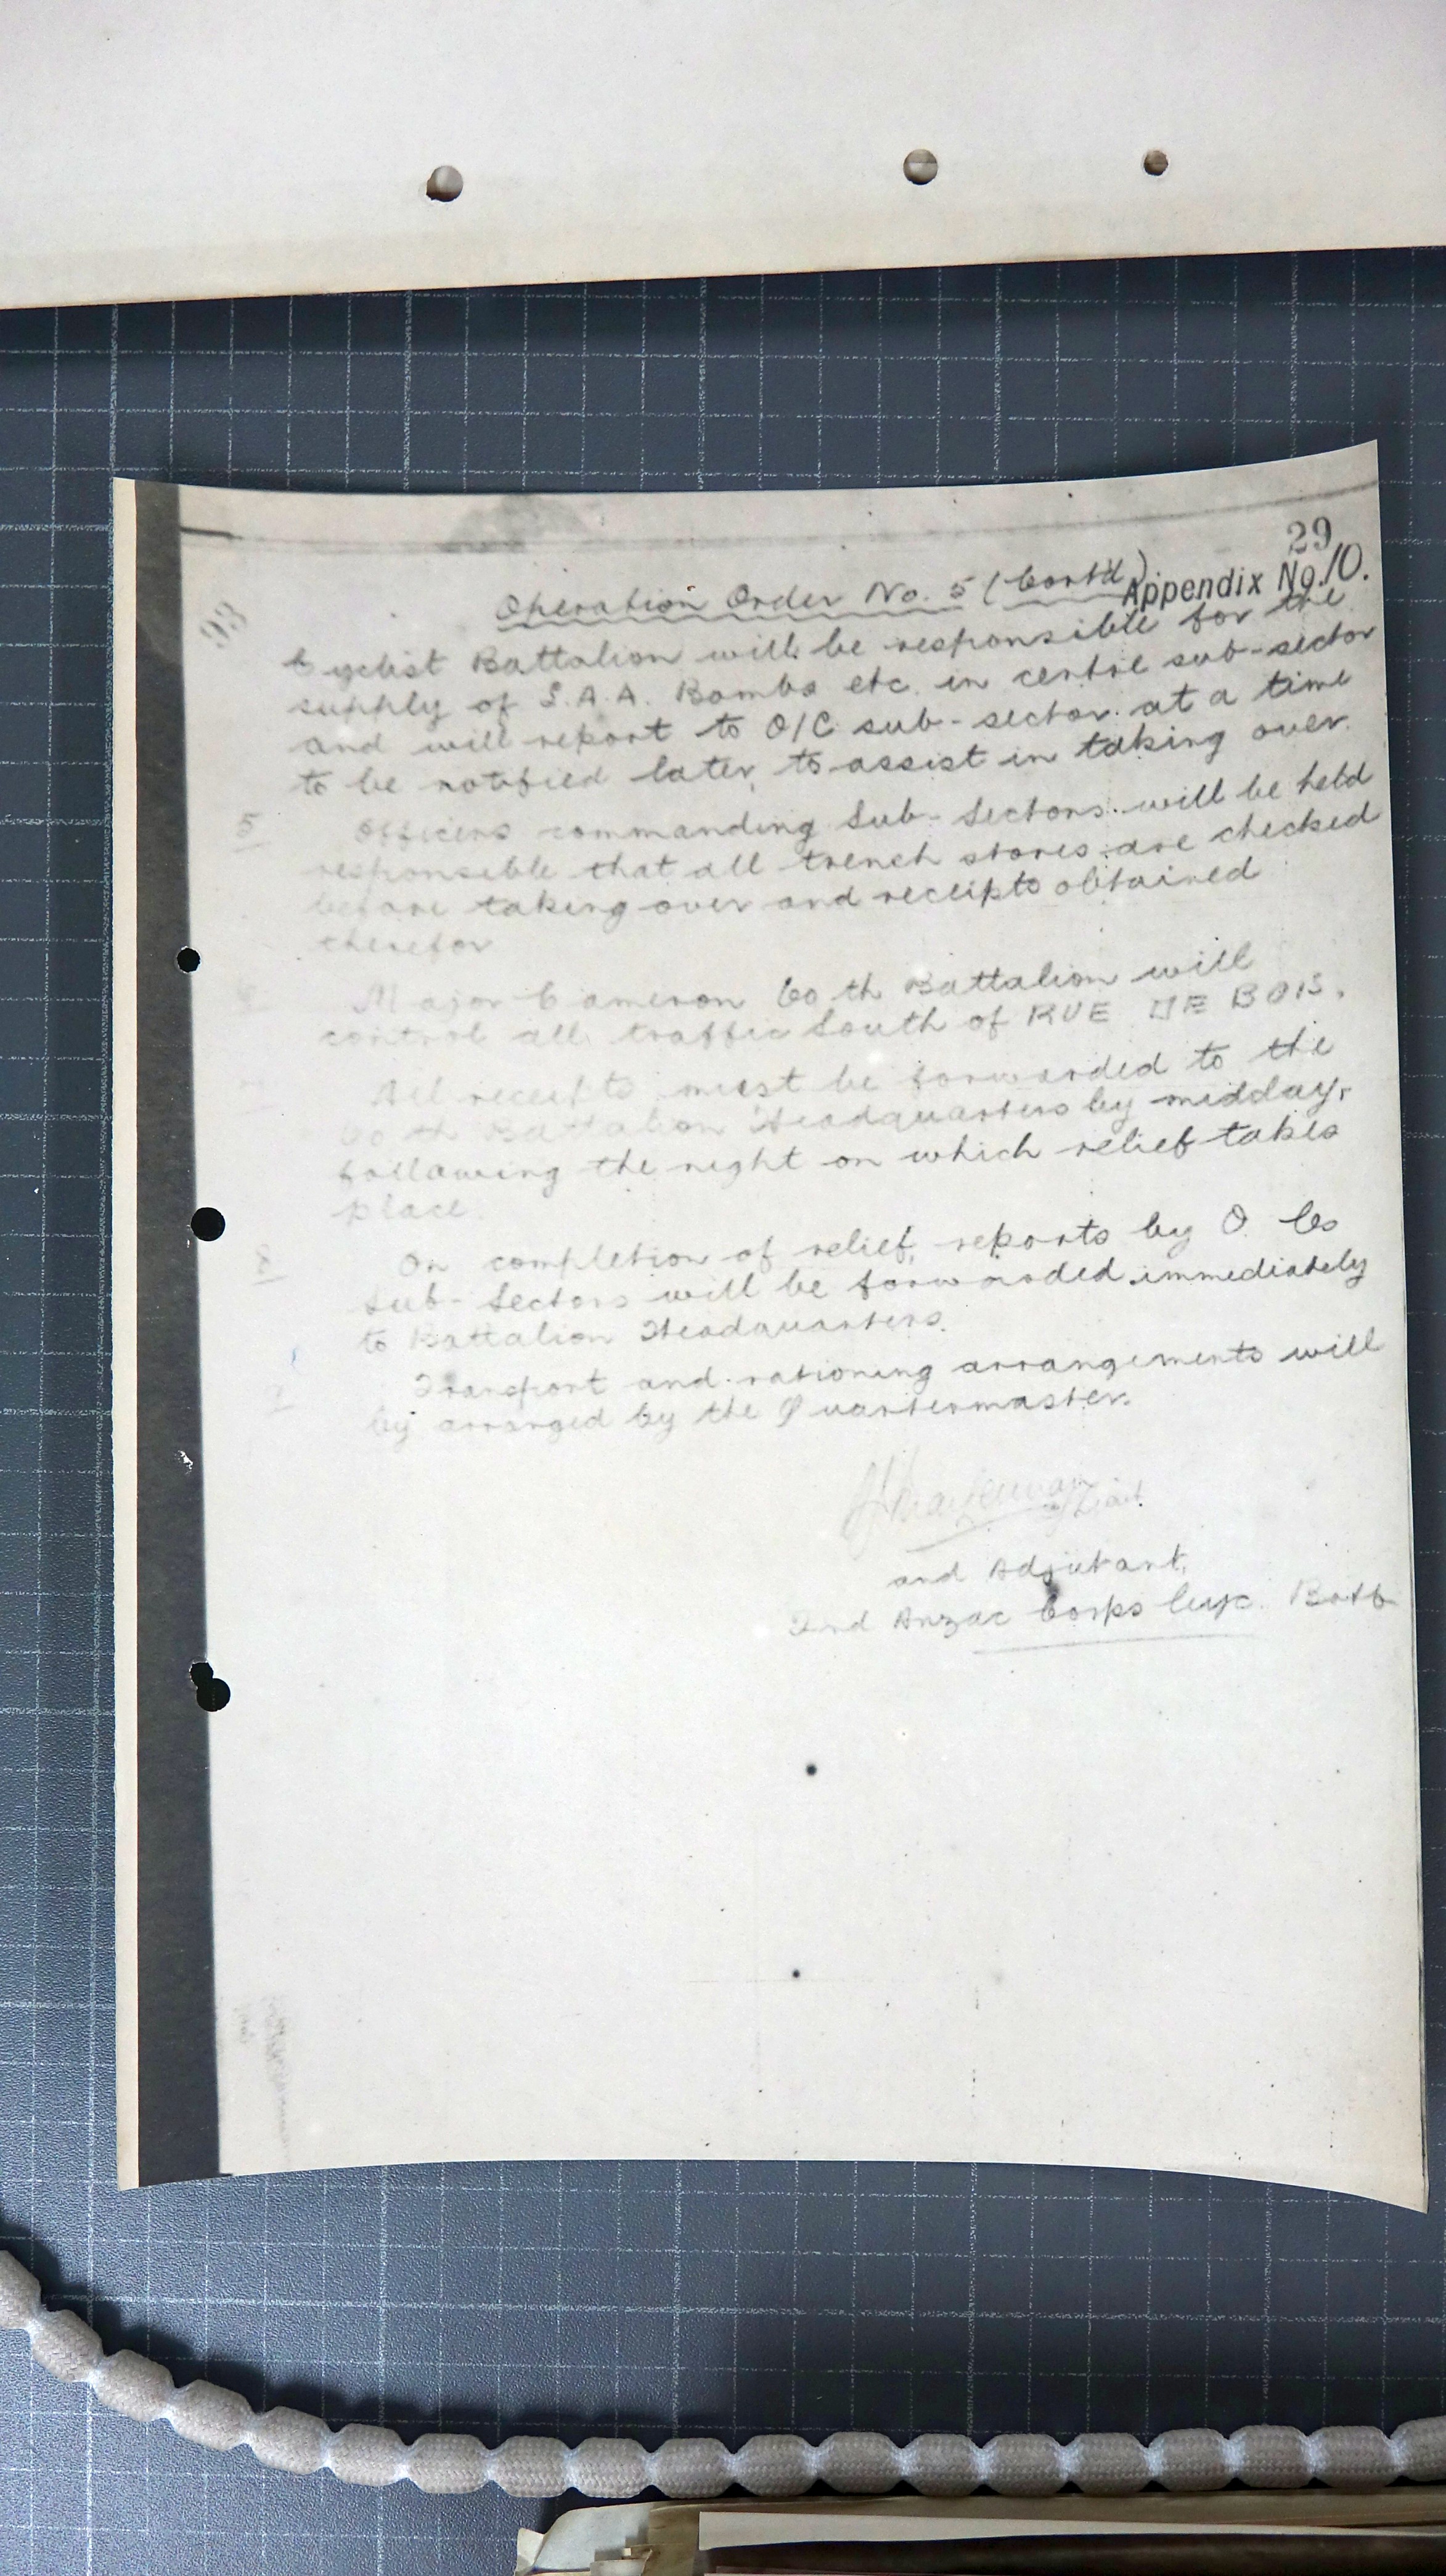 29
Appendix No. 10.
Operation Order No. 5 (Cont'd)
93
Cyclist Battalion will be responsible for the
supply of S.A.A. Bombs etc. in centre sub-sector
and will report to O/C sub-sector at a time
to be notified later, to assist in taking over.
5 Officers commanding Sub-Sectors will be held
responsible that all trench stores are checked
before taking over and receipts obtained
therefor
Major Cameron 60th Battalion will
control all traffic South of RUE DE BOIS.
All receipts must be forwarded to the
60th Battalion Headquarters by midday,
following the night on which relief takes
place.
8 On completion of relief, reports by O. Cs
Sub-Sectors will be forwarded immediately
to Battalion Headquarters.
Transport and rationing arrangements will
by arranged by the Quartermaster.
2/Lieut.
and Adjutant,
2nd Anzac Corps Cyc. Battn